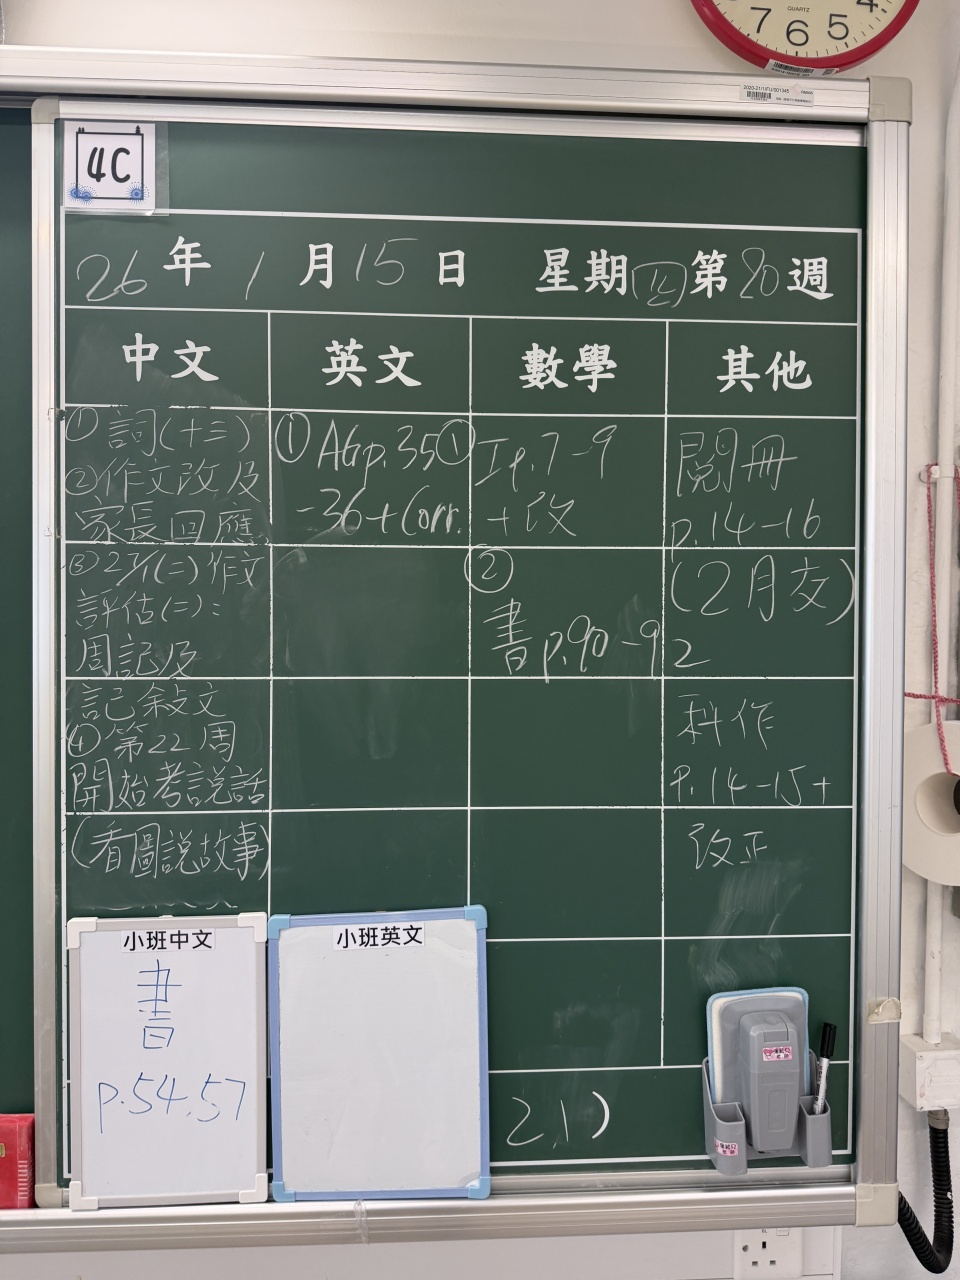 7 6 5 4
QUARTZ
2020-21/1/FU/001345
4C
26年1月15日 星期四第20週
中文 英文 數學 其他
①詞(十三)
②作文改及
家長回應
③27/1(二)作文
評估(二):
周記及
記敘文
④第22周
開始考說話
(看圖說故事)
①AGp.35
-36+Corr.
①If.7-9
+改
②
書p.90-92
閱冊
p.14-16
(2月交)
科作
P.14-15+
改正
小班中文
書
p.54,57
小班英文
21)